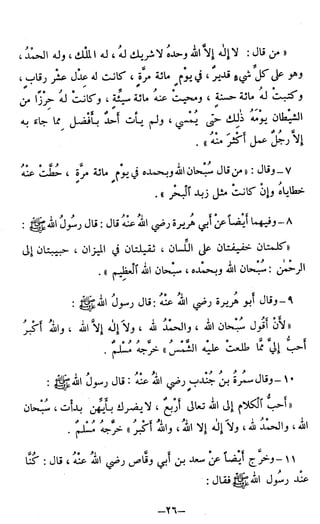 « من قال : لا إله إلاَّ الله وحده لا شريك لهُ ، له الملك ، وله الحمدُ ،
وهو على كلِّ شيءٍ قديرٌ ، في يومٍ مائة مرَّة ، كانت له عِدل عشر رقاب ،
وكتبتْ لهُ مائة حسنة ، ومحيتْ عنهُ مائة سيِّئة ، وكانتْ لهُ حِرزاً من
الشيطان يومَهُ ذلك حتى يُمسي ، ولم يأت أحدٌ بأفضل مما جاء به
إلاَّ رجُلٌ عمل أكثر منهُ » .
٧ – وقال : « من قال سُبْحان الله وبحمده في يومٍ مائة مرَّة ، حُطَّتْ عنهُ
خطاياهُ وإنْ كانتْ مثل زبد البحْر » .
٨ – وفيهما أيضاً عن أبي هريرة رضي اللهُ عنهُ قال : قال رسولُ الله ﷺ :
« كلمتان خفيفتان على اللِّسان ، ثقيلتان في الميزان ، حبيبتان إلى
الرحمن : سُبْحان الله وبحمْده ، سبْحان الله العظيم » .
٩ – وقال أبو هُريرة رضي اللهُ عنْهُ : قال رسولُ الله ﷺ :
« لأنْ أقول سُبحان الله ، والحمْدُ لله ، ولا إله إلاَّ الله ، واللهُ أكْبرُ
أحبُّ إليَّ ممَّا طلعتْ عليه الشَّمْسُ » خرَّجهُ مُسْلمٌ .
١٠ – وقال سمُرةُ بنُ جُنْدبٍ رضي اللهُ عنهُ : قال رسولُ الله ﷺ :
« أحبُّ الكلام إلى الله تعالى أربعٌ ، لا يضرك بأيِّهن بدأت ، سُبْحان
الله ، والحمْدُ لله ، ولا إله إلا اللهُ ، واللهُ أكبرُ » خرَّجهُ مُسلمٌ .
١١ – وخرَّج أيضاً عنْ سعد بن أبي وقَّاص رضي اللهُ عنْه ، قال : كُنَّا
عند رسول الله ﷺ فقال :
–٢٦–